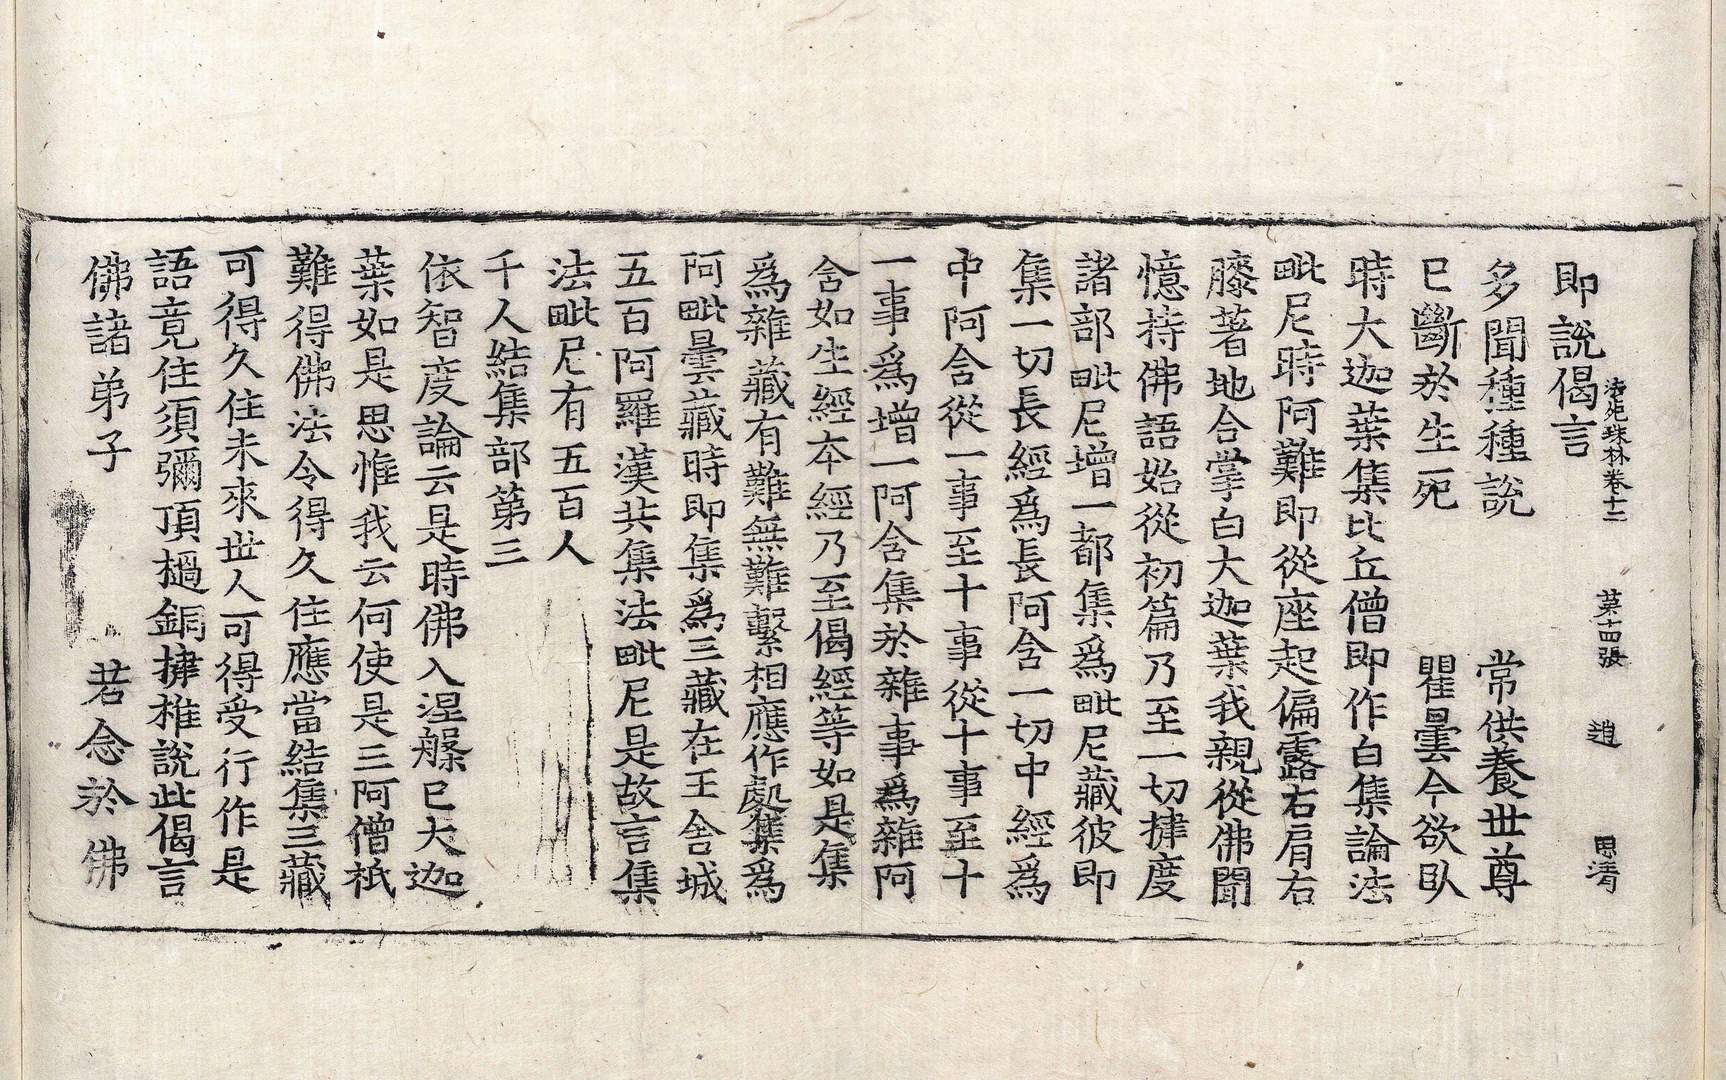 即說偈言
法苑珠林卷十二 菓 十四張 趙 思清
多聞種種說 常供養世尊
已斷於生死 瞿曇今欲臥
時大迦葉集比丘僧即作白集論法
毗尼時阿難即從座起偏露右肩右
膝著地合掌白大迦葉我親從佛聞
憶持佛語始從初篇乃至一切揵度
諸部毗尼增一都集為毗尼藏彼即
集一切長經為長阿含一切中經為
中阿含從一事至十事從十事至十
一事為增一阿含集於雜事為雜阿
含如生經本經乃至偈經等如是集
為雜藏有難無難繫相應作處集為
阿毗曇藏時即集為三藏在王舍城
五百阿羅漢共集法毗尼是故言集
法毗尼有五百人
千人結集部第三
依智度論云是時佛入涅槃已大迦
葉如是思惟我云何使是三阿僧祇
難得佛法令得久住應當結集三藏
可得久住未來世人可得受行作是
語竟住須彌頂撾銅揵椎說此偈言
佛諸弟子 若念於佛